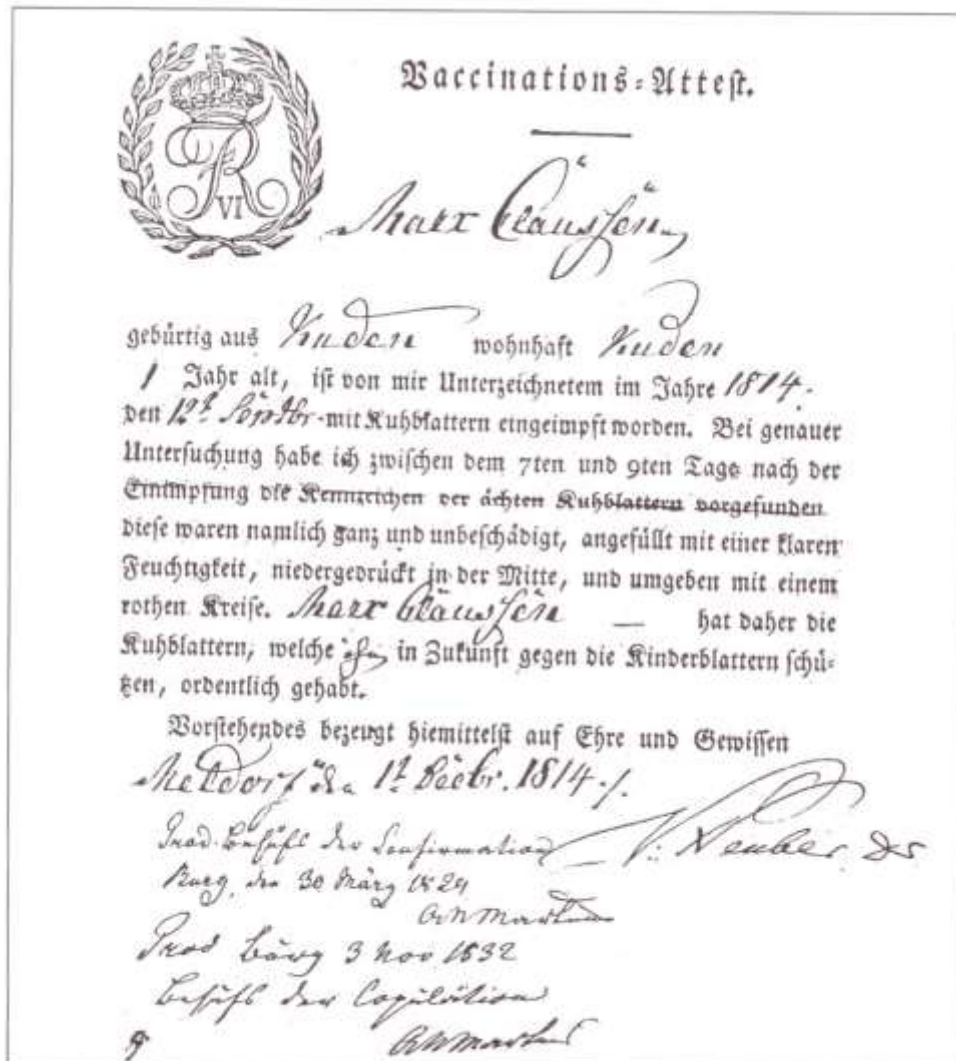 FR VI
Vaccinations-Attest.
Marx Claussen
gebürtig aus Kuden wohnhaft Kuden
1 Jahr alt, ist von mir Unterzeichnetem im Jahre 1814.
den 12t Septbr. mit Kuhblattern eingeimpft worden. Bei genauer
Untersuchung habe ich zwischen dem 7ten und 9ten Tage nach der
Einimpfung die Kennzeichen der ächten Kuhblattern vorgefunden
diese waren namlich ganz und unbeschädigt, angefüllt mit einer klaren
Feuchtigkeit, niedergedrückt in der Mitte, und umgeben mit einem
rothen Kreise. Marx Claussen — hat daher die
Kuhblattern, welche ihn in Zukunft gegen die Kinderblattern schü-
tzen, ordentlich gehabt.
Vorstehendes bezeugt hiemittelst auf Ehre und Gewissen
Meldorf den 1t Decbr. 1814
Neuber Dr
Prod. Behufs der Confirmation
Burg, den 30 März 1829
Prod Burg 3 Nov 1832
Behufs der Copulation